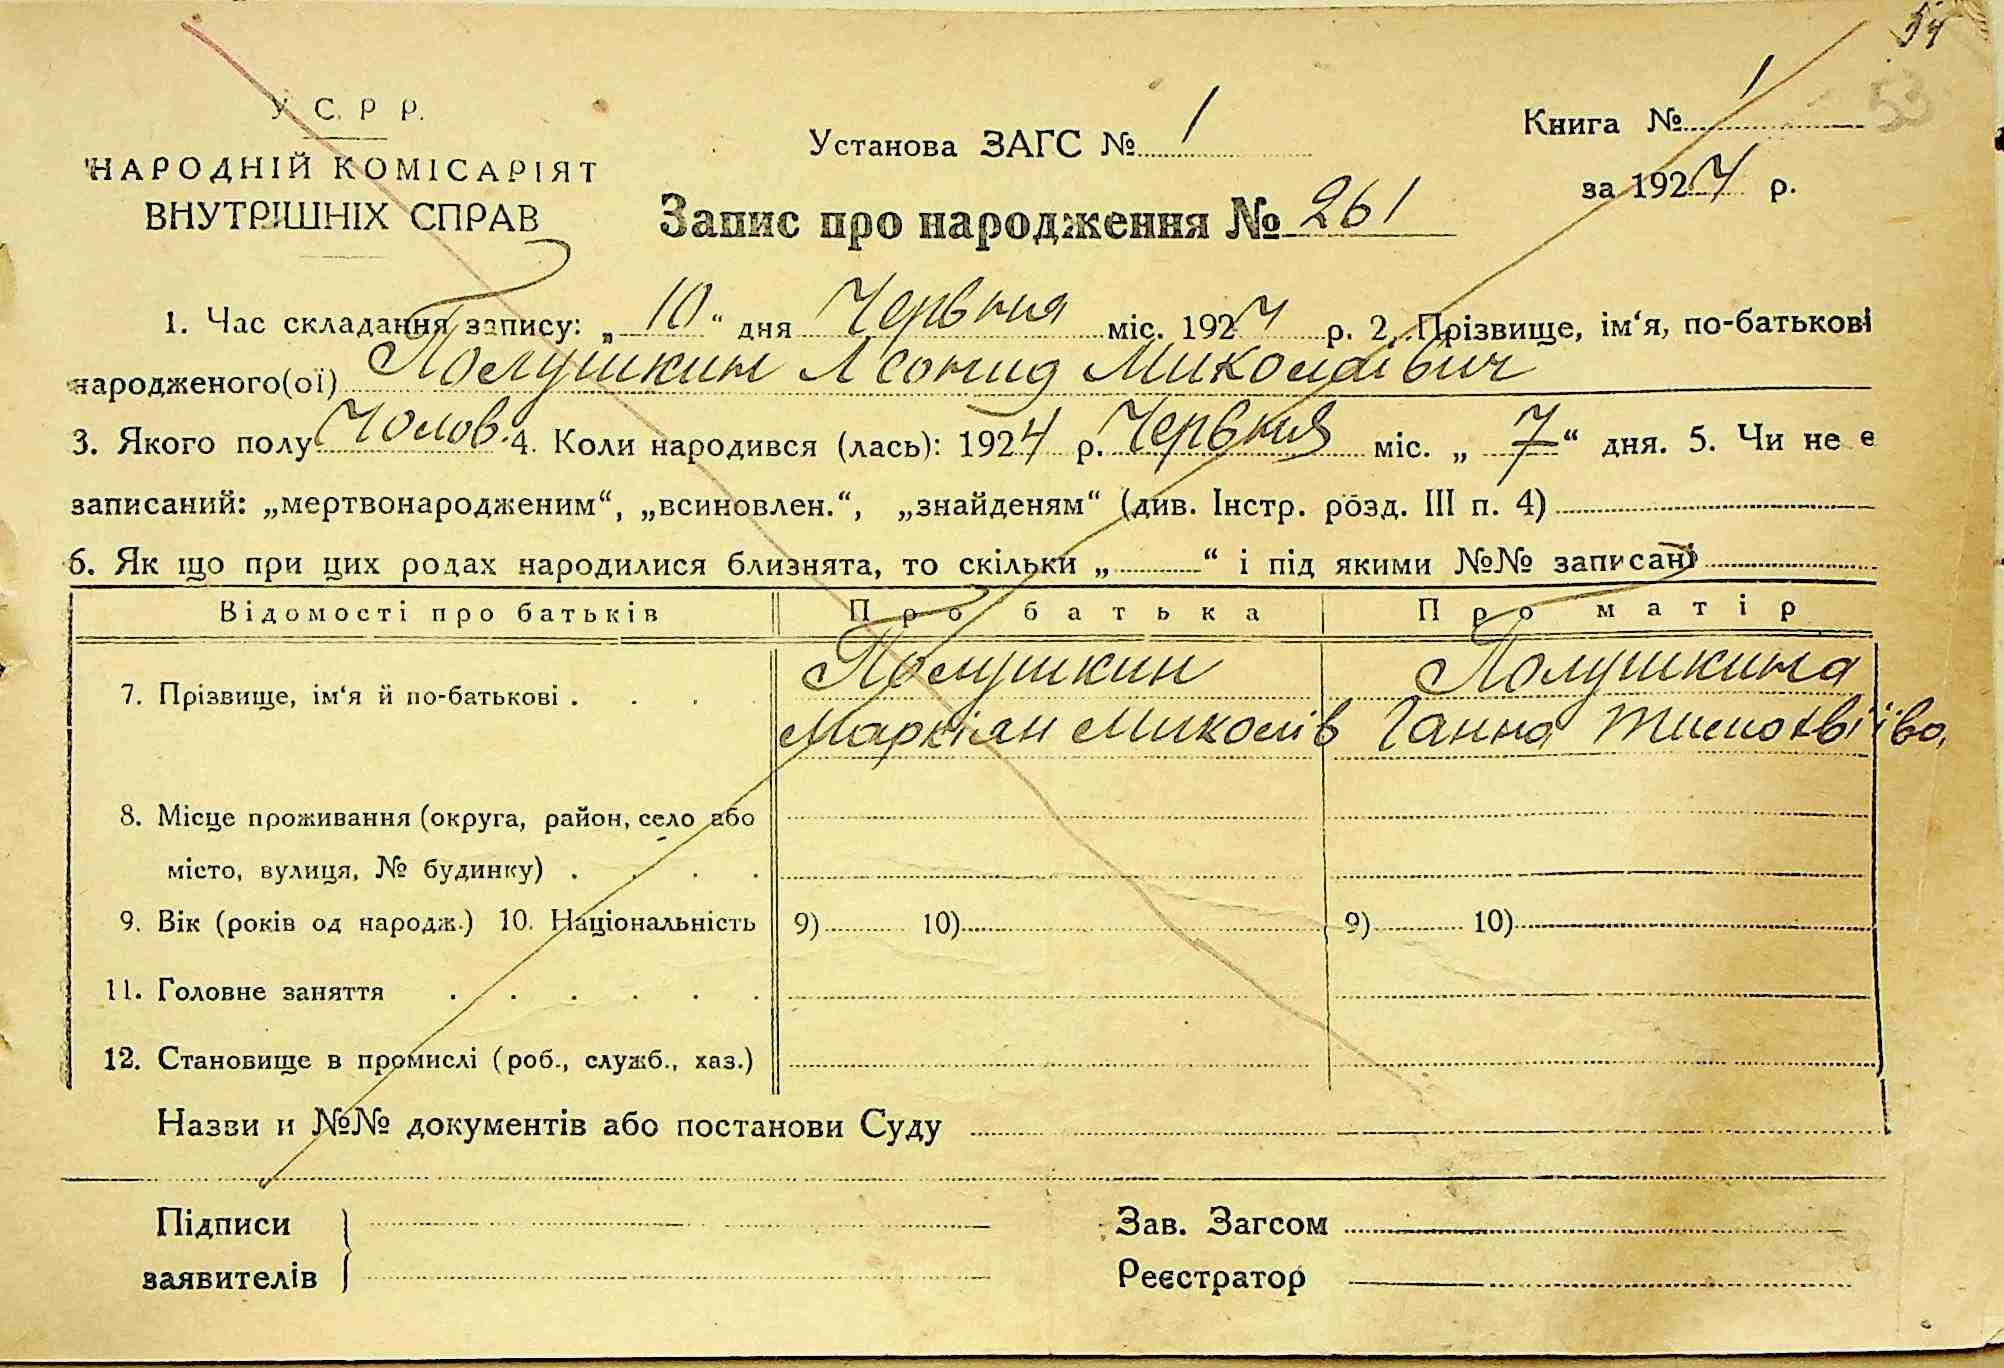 54
53
У. С. Р. Р.
НАРОДНІЙ КОМІСАРІЯТ
ВНУТРІШНІХ СПРАВ
Установа ЗАГС № 1
Книга № 1
за 1924 р.
Запис про народження № 261
1. Час складання запису: „ 10 “ дня Червня міс. 1924 р. 2. Прізвище, ім‘я, по-батькові
народженого(ої) Полушкин Леонид Миколаівич
3. Якого полу Чолов. 4. Коли народився (лась): 1924 р. Червня міс. „ 7 “ дня. 5. Чи не є
записаний: „мертвонародженим“, „всиновлен.“, „знайденям“ (див. Інстр. розд. III п. 4)
6. Як що при цих родах народилися близнята, то скільки „ “ і під якими №№ записані
Відомості про батьків Про батька Про матір
Полушкин Полушкина
7. Прізвище, ім‘я й по-батькові . . . .
Маркіян Миколів Ганна Тимофвіїва
8. Місце проживання (округа, район, село або
місто, вулиця, № будинку) . . . .
9. Вік (років од народж.) 10. Національність 9) 10) 9) 10)
11. Головне заняття . . . . . .
12. Становище в промислі (роб., служб., хаз.)
Назви и №№ документів або постанови Суду
Підписи
заявителів
Зав. Загсом
Реєстратор